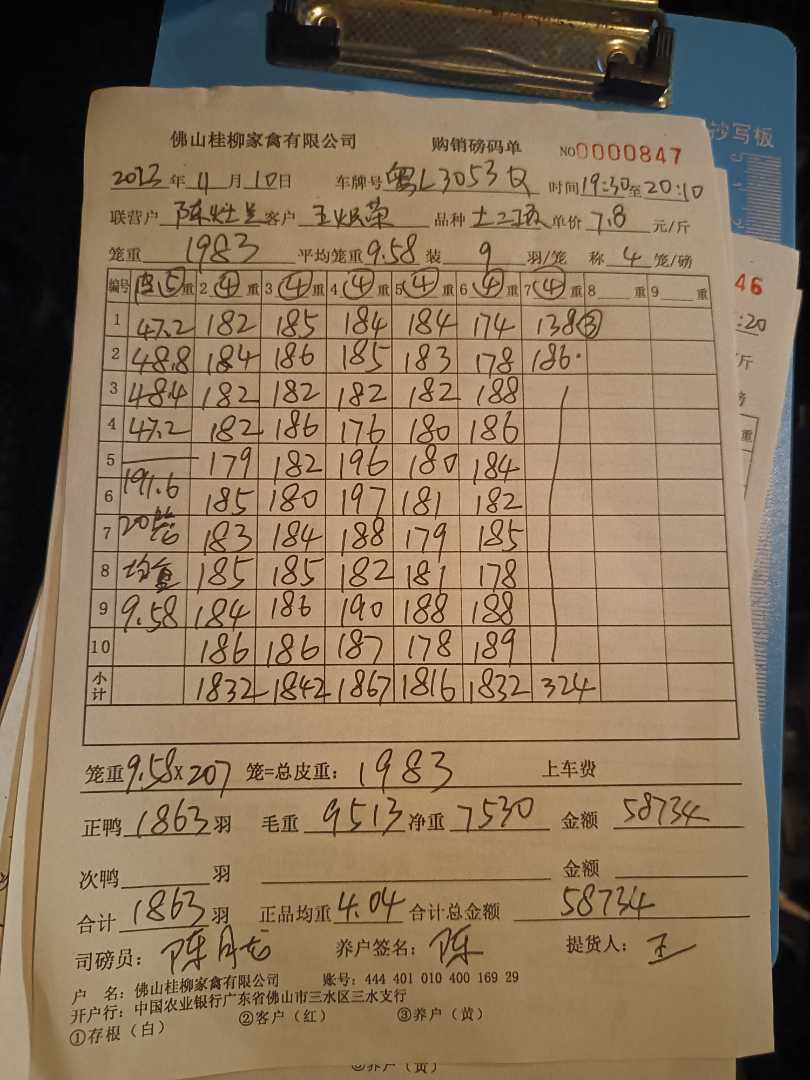 抄写板
佛山桂柳家禽有限公司 购销磅码单 NO0000847
2023年11月10日 车牌号 粤L3053 时间19:30至20:10
联营户 陈灶兰 客户 王炽荣 品种 土二 单价 7.8 元/斤
笼重 1983 平均笼重 9.58 装 9 羽/笼 称 4 笼/磅
编号 皮⑤重 2④重 3④重 4④重 5④重 6④重 7④重 8 重 9 重
1 47.2 182 185 184 184 174 138③
2 48.8 184 186 185 183 178 186
3 48.4 182 182 182 182 188
4 47.2 182 186 176 180 186
5 179 182 196 180 184
6 191.6 185 180 197 181 182
7 20笼 183 184 188 179 185
8 均重 185 185 182 181 178
9 9.58 184 186 190 188 188
10 186 186 187 178 189
小计 1832 1842 1867 1816 1832 324
笼重9.58×207 笼=总皮重：1983 上车费
正鸭 1863 羽 毛重 9513 净重 7530 金额 58734
次鸭 羽 金额
合计 1863 羽 正品均重 4.04 合计总金额 58734
司磅员： 陈月 养户签名： 陈 提货人： 王
户 名：佛山桂柳家禽有限公司 账号：444 401 010 400 169 29
开户行：中国农业银行广东省佛山市三水区三水支行
①存根（白） ②客户（红） ③养户（黄）
46
:20
/斤
重
③养户（黄）